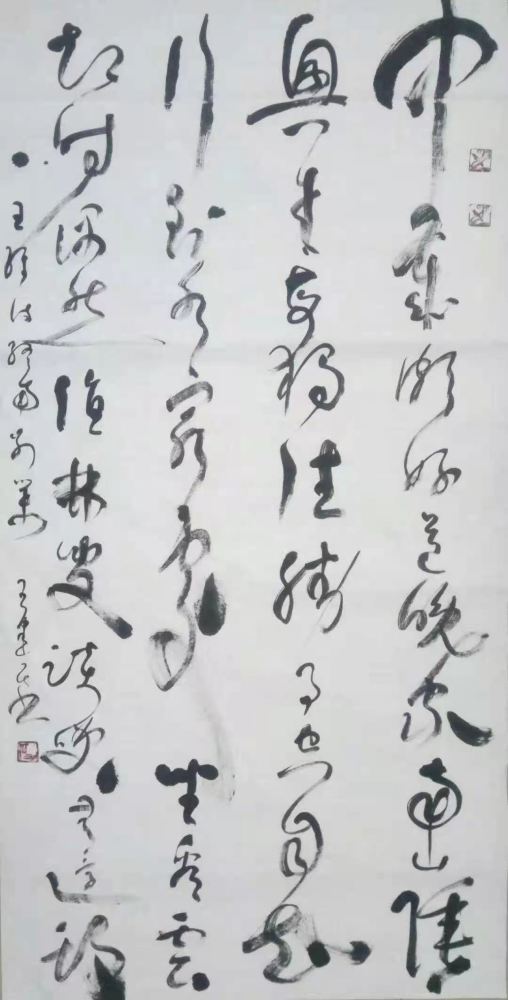 中歲頗好道晚家南山陲
興来每獨往勝事空自知
行到水窮處坐看雲
起時偶然值林叟談笑還期
王維詩終南別業